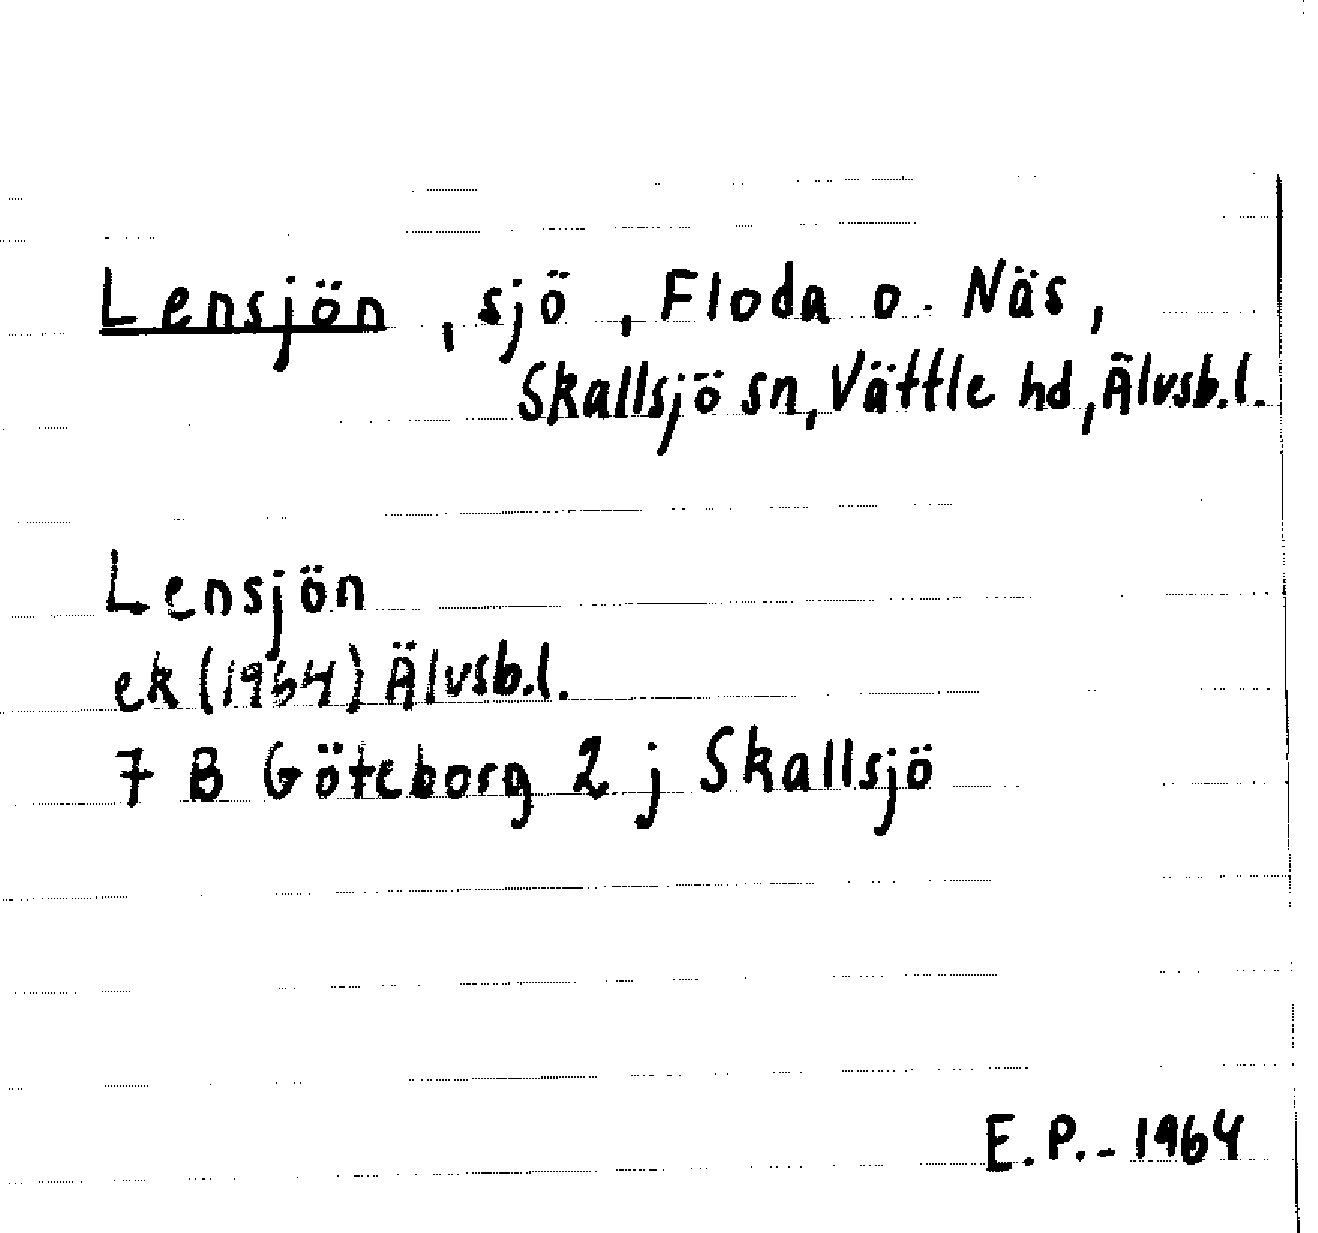 Lensjön, sjö, Floda o. Näs,
Skallsjö sn, Vättle hd, Älvsb.l.
Lensjön
ek (1964) Älvsb.l.
7 B Göteborg 2 j Skallsjö
E.P.-1964